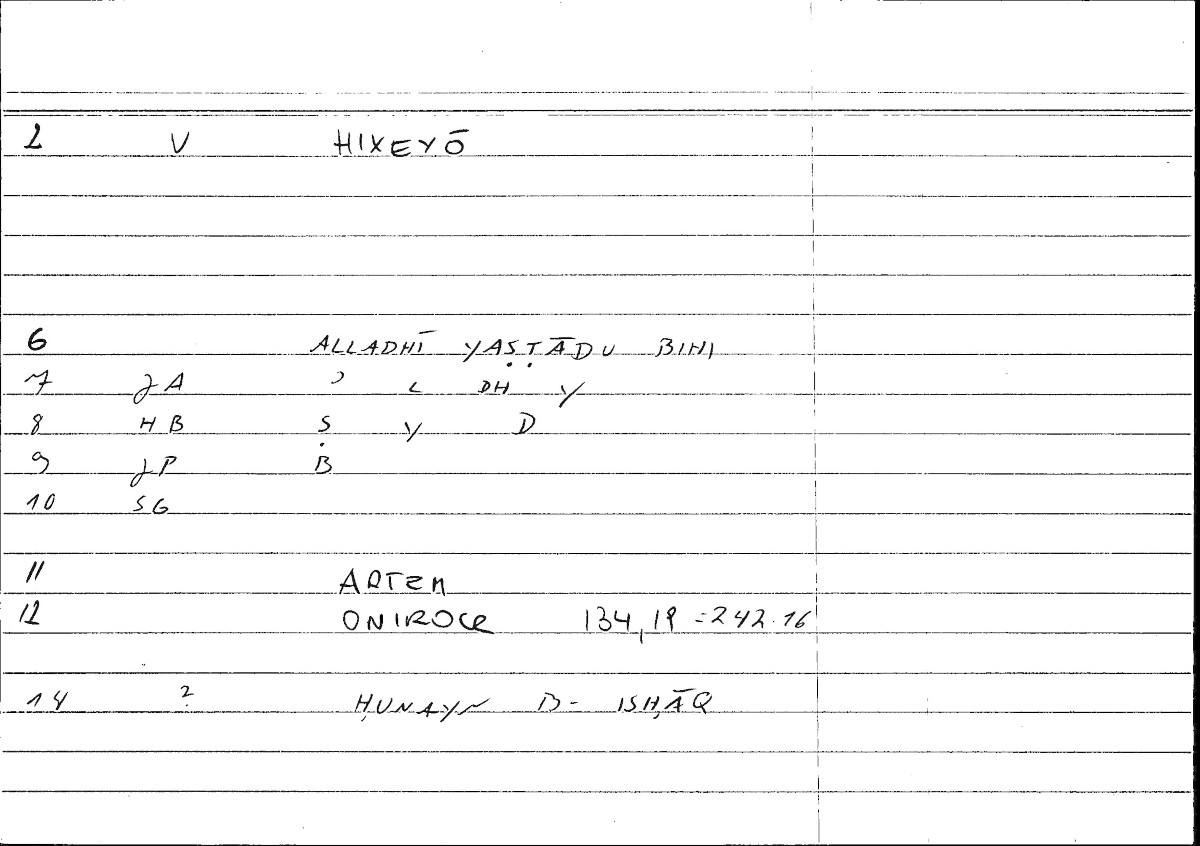 2 V HIXEYŌ
6 ALLADHĪ YAṢṬĀDU BIHI
7 JA ʾ L DH Y
8 HB Ṣ Y D
9 JP B
10 SG
11 ARTEM
12 ONIROCR 134,19 =242.16
14 ? ḤUNAYN B- ISḤĀQ